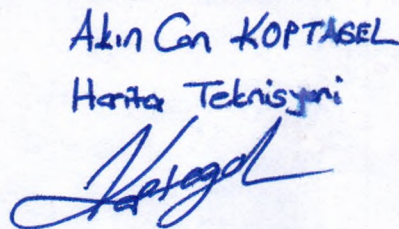 Akın Can KOPTAGEL
Harita Teknisyeni
Koptagel